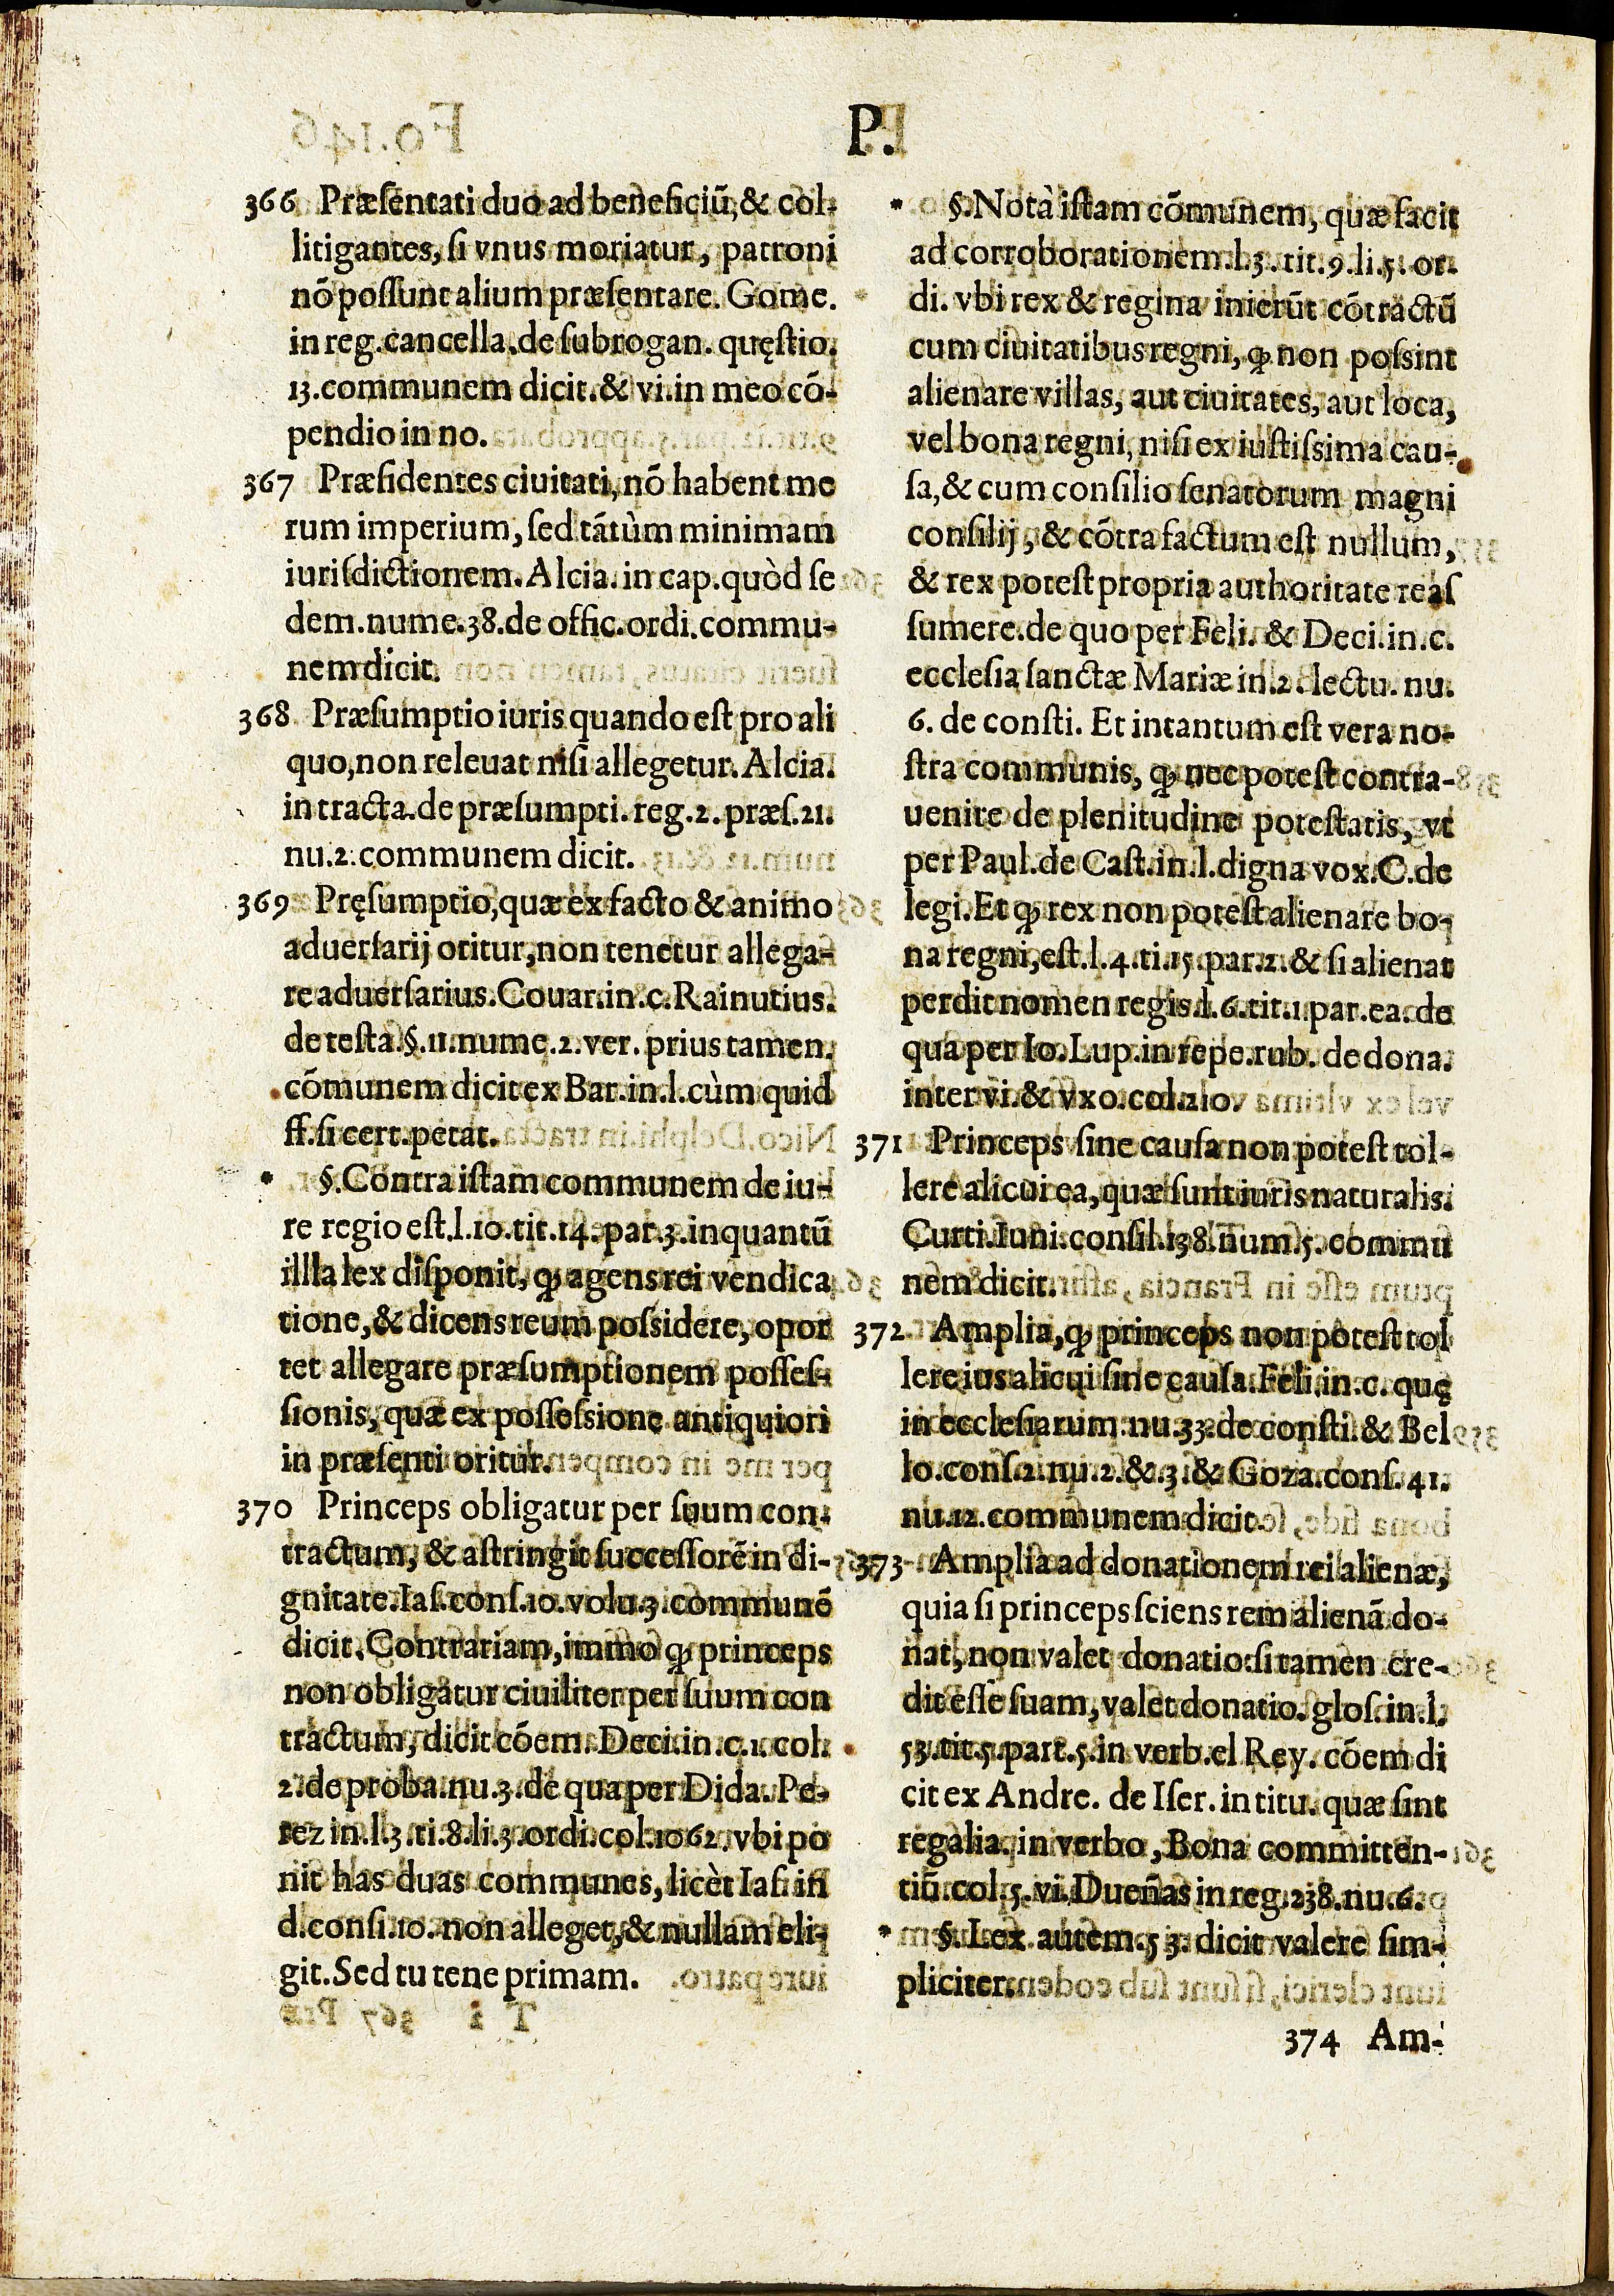 P.
366 Præſentati duo ad beneficiũ, & col-
litigantes, ſi vnus moriatur, patroni
nõ poſſunt alium præſentare. Gome.
in reg. cancella. de ſubrogan. quęſtio.
13. communem dicit. & vi. in meo cõ-
pendio in no.
367 Præſidentes ciuitati, nõ habent me
rum imperium, ſed tãtùm minimam
iuriſdictionem. Alcia. in cap. quòd ſe
dem. nume. 38. de offic. ordi. commu-
nem dicit.
368 Præſumptio iuris quando eſt pro ali
quo, non releuat niſi allegetur. Alcia.
in tracta. de præſumpti. reg. 2. præſ. 21.
nu. 2. communem dicit.
369 Pręſumptio, quæ ex facto & animo
aduerſarij oritur, non tenetur allega-
re aduerſarius. Couar. in. c. Rainutius.
de teſta. §. 11. nume. 2. ver. prius tamen.
cõmunem dicit ex Bar. in. l. cùm quid
ff. ſi cert. petat.
* §. Contra iſtam communem de iu-
re regio eſt. l. 10. tit. 14. par. 3. inquantũ
illla lex diſponit, ꝙ agens rei vendica
tione, & dicens reum poſsidere, opor
tet allegare præſumptionem poſſeſ-
ſionis, quæ ex poſſeſsione antiquiori
in præſenti oritur.
370 Princeps obligatur per ſuum con-
tractum, & aſtringit ſucceſſorẽ in di-
gnitate. Iaſ. conſ. 10. volu. 3. communẽ
dicit. Contrariam, immo ꝙ princeps
non obligatur ciuiliter per ſuum con
tractum, dicit cõem. Deci. in. c. 1. col.
2. de proba. nu. 3. de qua per Dida. Pe-
rez in. l. 3. ti. 8. li. 3. ordi. col. 1062. vbi po
nit has duas communes, licèt Iaſ. in
d. conſi. 10. non alleget, & nullam eli-
git. Sed tu tene primam.
* §. Notà iſtam cõmunem, quæ facit
ad corroborationem. l. 3. tit. 9. li. 5. or-
di. vbi rex & regina inierũt cõtractũ
cum ciuitatibus regni, ꝙ non poſsint
alienare villas, aut ciuitates, aut loca,
vel bona regni, niſi ex iuſtiſsima cau-
ſa, & cum conſilio ſenatorum magni
conſilij, & cõtra factum eſt nullum,
& rex poteſt propria authoritate reaſ
ſumere. de quo per Feli. & Deci. in. c.
eccleſia ſanctæ Mariæ in. 2. lectu. nu.
6. de conſti. Et intantum eſt vera no-
ſtra communis, ꝙ nec poteſt contra-
uenire de plenitudine poteſtatis, vt
per Paul. de Caſt. in. l. digna vox. C. de
legi. Et ꝙ rex non poteſt alienare bo-
na regni, eſt. l. 4. ti. 15. par. 2. & ſi alienat
perdit nomen regis. l. 6. tit. 1. par. ea. de
qua per Io. Lup. in repe. rub. de dona.
inter vi. & vxo. col. 210.
371 Princeps ſine cauſa non poteſt tol-
lere alicui ea, quæ ſunt iuris naturalis.
Curti. Iuni. conſil. 138. num. 5. commu
nem dicit.
372 Amplia, ꝙ princeps non poteſt tol
lere ius alicui ſine cauſa. Feli. in. c. quę
in eccleſiarum. nu. 33. de conſti. & Bel
lo. conſ. 2. nu. 2. & 3. & Goza. conſ. 41.
nu. 12. communem dicit.
373 Amplia ad donationem rei alienæ,
quia ſi princeps ſciens rem alienã do-
nat, non valet donatio: ſi tamen cre-
dit eſſe ſuam, valet donatio. gloſ. in. l.
53. tit. 5. part. 5. in verb. el Rey. cõem di
cit ex Andre. de Iſer. in titu. quæ ſint
regalia. in verbo, Bona committen-
tiũ. col. 5. vi. Dueñas in reg. 238. nu. 6.
* §. Lex autem. 53. dicit valere ſim-
pliciter.
374 Am-